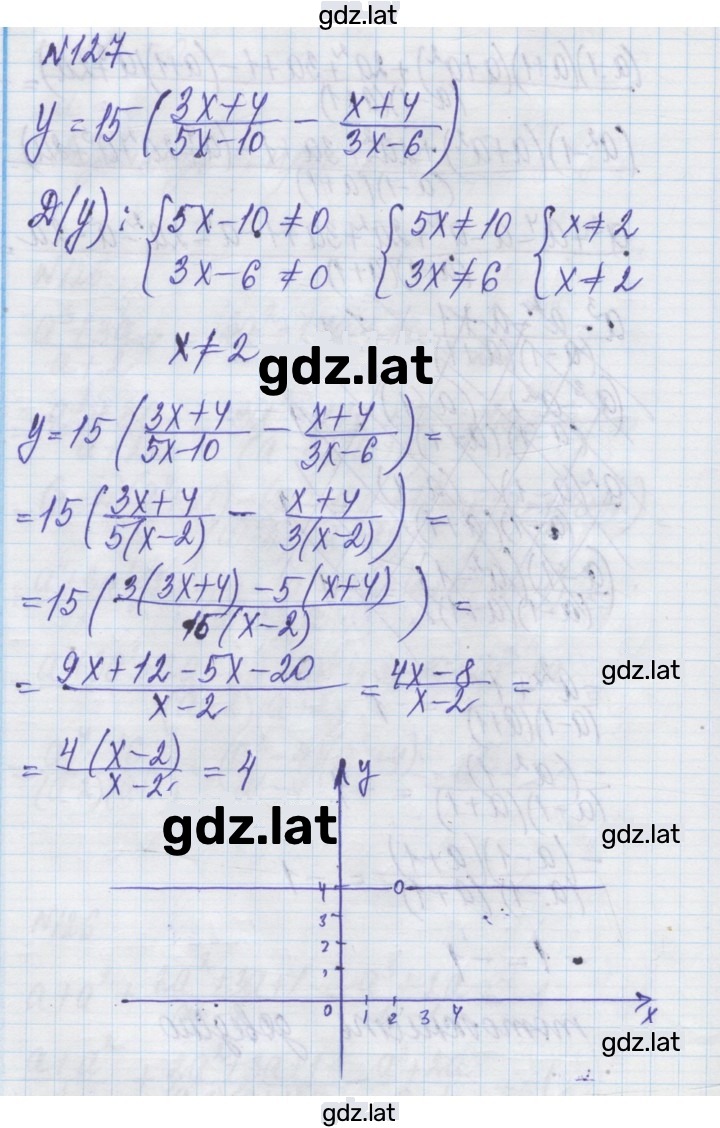 gdz.lat
№127
y=15(\frac{3x+4}{5x-10} - \frac{x+4}{3x-6})
D(y): {5x-10≠0 {5x≠10 {x≠2
3x-6≠0 3x≠6 x≠2
x≠2
gdz.lat
y=15(\frac{3x+4}{5x-10} - \frac{x+4}{3x-6})=
=15(\frac{3x+4}{5(x-2)} - \frac{x+4}{3(x-2)})=
=15(\frac{3(3x+4)-5(x+4)}{15(x-2)})=
=\frac{9x+12-5x-20}{x-2}=\frac{4x-8}{x-2}=
gdz.lat
=\frac{4(x-2)}{x-2}=4
y
gdz.lat
gdz.lat
4
3
2
1
0 1 2 3 4 x
gdz.lat
gdz.lat